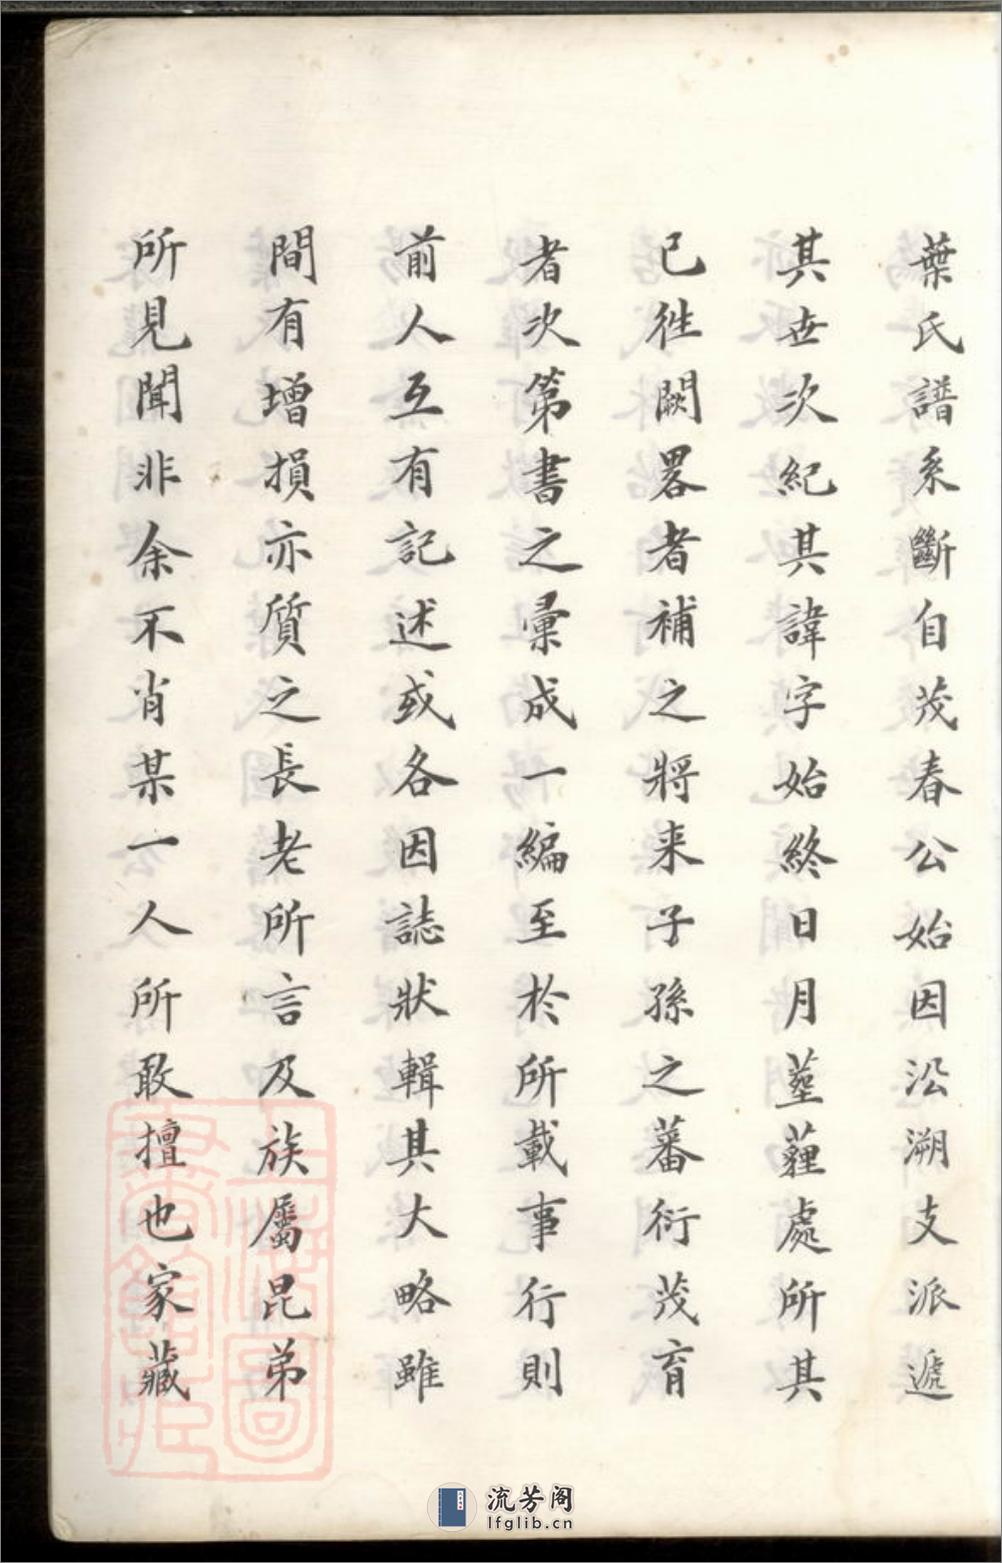 葉氏譜系斷自茂春公始因沿溯支派遞
其世次紀其諱字始終日月塟薶處所其
已徃闕畧者補之將来子孫之蕃衍茂育
者次第書之彙成一編至於所載事行則
前人互有記述或各因誌狀輯其大略雖
間有增損亦質之長老所言及族屬昆弟
所見聞非余不肖某一人所敢擅也家藏
上海圖
書館藏
流芳阁
lfglib.cn